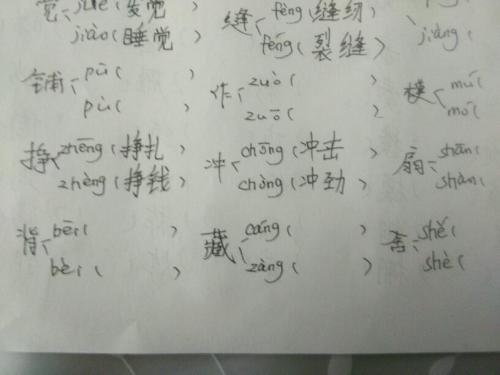 觉 jiào(睡觉 缝 féng(缝纫
fèng(裂缝) jiāng(
铺 pū( ) 作 zuō( ) 模 mú(
pù( ) zuò( ) mó(
挣 zhēng(挣扎) 冲 chōng(冲击) 扇 shān(
zhèng(挣钱) chòng(冲劲) shàn(
背 bēi( ) 藏 cáng( ) 舍 shě(
bèi( ) zàng( ) shè(